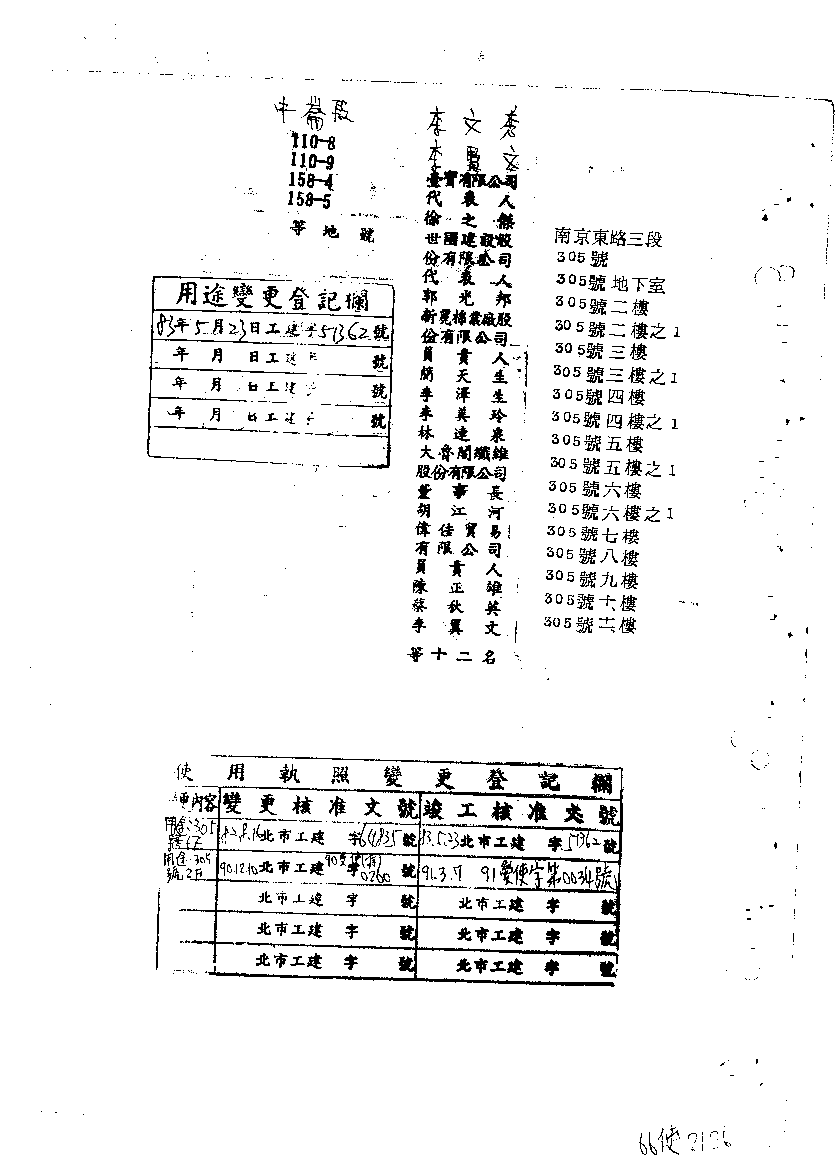 中崙段
110-8
110-9
158-4
158-5
等地號
李文秀
李賢文
臺寶有限公司
代表人
徐之傑
世國建設股
份有限公司
代表人
郭光邦
新光棉業廠股
份有限公司
負責人
簡天生
李澤生
李美玲
林連泉
大魯閣纖維
股份有限公司
董事長
胡江河
偉佳貿易
有限公司
負責人
陳正雄
蔡狄英
李翼文
等十二名
南京東路三段
305號
305號地下室
305號二樓
305號二樓之1
305號三樓
305號三樓之1
305號四樓
305號四樓之1
305號五樓
305號五樓之1
305號六樓
305號六樓之1
305號七樓
305號八樓
305號九樓
305號十樓
305號十二樓
用途變更登記欄
83年5月23日工建字51362號
年月日工建字號
年月日工建字號
年月日工建字號
使用執照變更登記欄
更內容 變更核准文號 竣工核准文號
用途:305 82.8.16北市工建字64835號 83.5.23北市工建字51362號
用途:305號2F 90.12.10北市工建字0260號 91.3.7 91變使字第0034號
北市工建字號 北市工建字號
北市工建字號 北市工建字號
北市工建字號 北市工建字號
66使2126